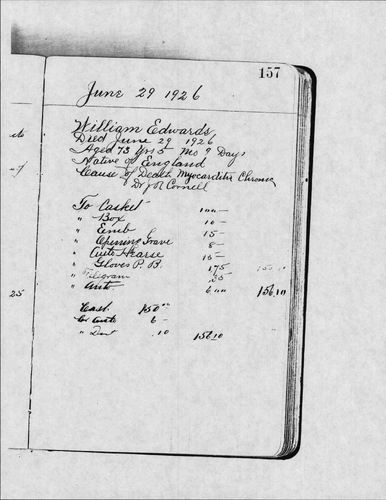 157
June 29 1926
William Edwards
Died June 29 1926
Aged 73 Yrs 5 Mo 9 Days
Native of England
Cause of Death Myocarditis Chronic
Dr J R Cornell
To Casket 100 —
" Box 10 —
" Emb 15 —
" Opening Grave 8 —
" Auto Hearse 15 —
" Gloves P. B. 1 75
" Telegram .35
" Auto 6 00 156.10
Cash 150 00
Cr Auto 6 —
" Dist .10 156.10
25